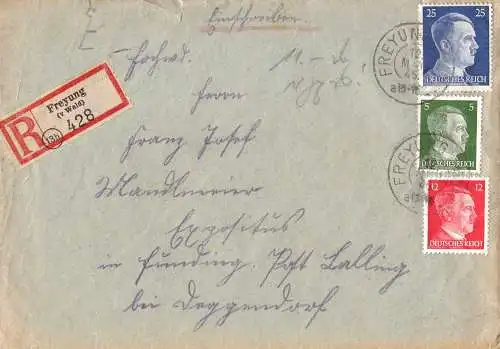 Einschreiben
Hochw.
Herrn
R
Freyung
(v Wald)
(13b)
428
Franz Josef
Mandlmeier
Expositus
in Hunding, Post Lalling
bei Deggendorf
25 25
DEUTSCHES REICH
5 5
DEUTSCHES REICH
12 12
DEUTSCHES REICH
FREYUNG
FREYUNG